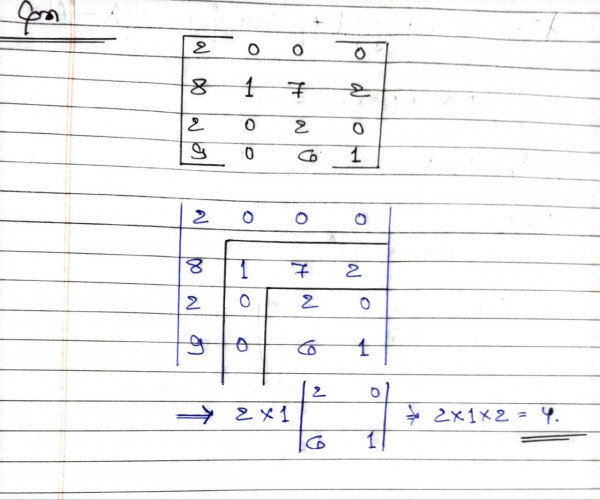 Qon
2 0 0 0
8 1 7 2
2 0 2 0
9 0 6 1
2 0 0 0
8 1 7 2
2 0 2 0
9 0 6 1
→ 2×1 | 2 0 | → 2×1×2 = 4.
6 1